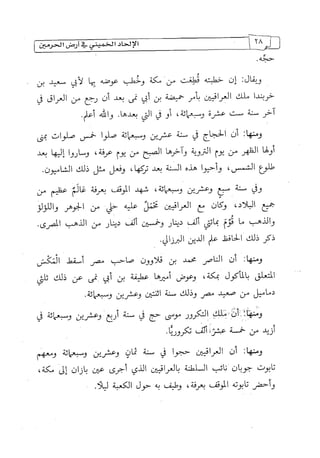 ٢٨
الإلحاد الخميني في أرض الحرمين
حجُّه.
ويقال: إن خطبته قُطِعَت من مكة وخُطب عوضه بها لأبي سعيد بن
خربندا ملك العراقيين بأمر حميضة بن أبي نمى بعد أن رجع من العراق في
آخر سنة ست عشرة وسبعمائة، أو في التي بعدها. والله أعلم.
ومنها: أن الحجاج في سنة عشرين وسبعمائة صلوا خمس صلوات بمنى
أولها الظهر من يوم التروية وآخرها الصبح من يوم عرفة، وساروا إليها بعد
طلوع الشمس، وأحيوا هذه السنة بعد تركها، وفعل مثل ذلك الشاميون.
وفي سنة سبع وعشرين وسبعمائة، شهد الموقف بعرفة عَالَمٌ عظيم من
جميع البلاد، وكان مع العراقيين محْمَلٌ عليه حلي من الجوهر واللؤلؤ
والذهب ما قُوِّم بمائتي ألف دينار وخمسين ألف دينار من الذهب المصري.
ذكر ذلك الحافظ علم الدين البرزالي.
ومنها: أن الناصر محمد بن قلاوون صاحب مصر أسقط المَكْسَ
المتعلق بالمأكول بمكة، وعوض أميرها عطيفة بن أبي نمى عن ذلك ثلثي
دماميل من صعيد مصر وذلك سنة اثنتين وعشرين وسبعمائة.
ومنها: أن مَلك التكرور موسى حج في سنة أربع وعشرين وسبعمائة في
أزيد من خمسة عشر ألف تكروريًّا.
ومنها: أن العراقيين حجوا في سنة ثمانٍ وعشرين وسبعمائة ومعهم
تابوت جوبان نائب السلطنة بالعراقيين الذي أجرى عين بازان إلى مكة،
وأحضر تابوته الموقف بعرفة، وطيف به حول الكعبة ليلًا.